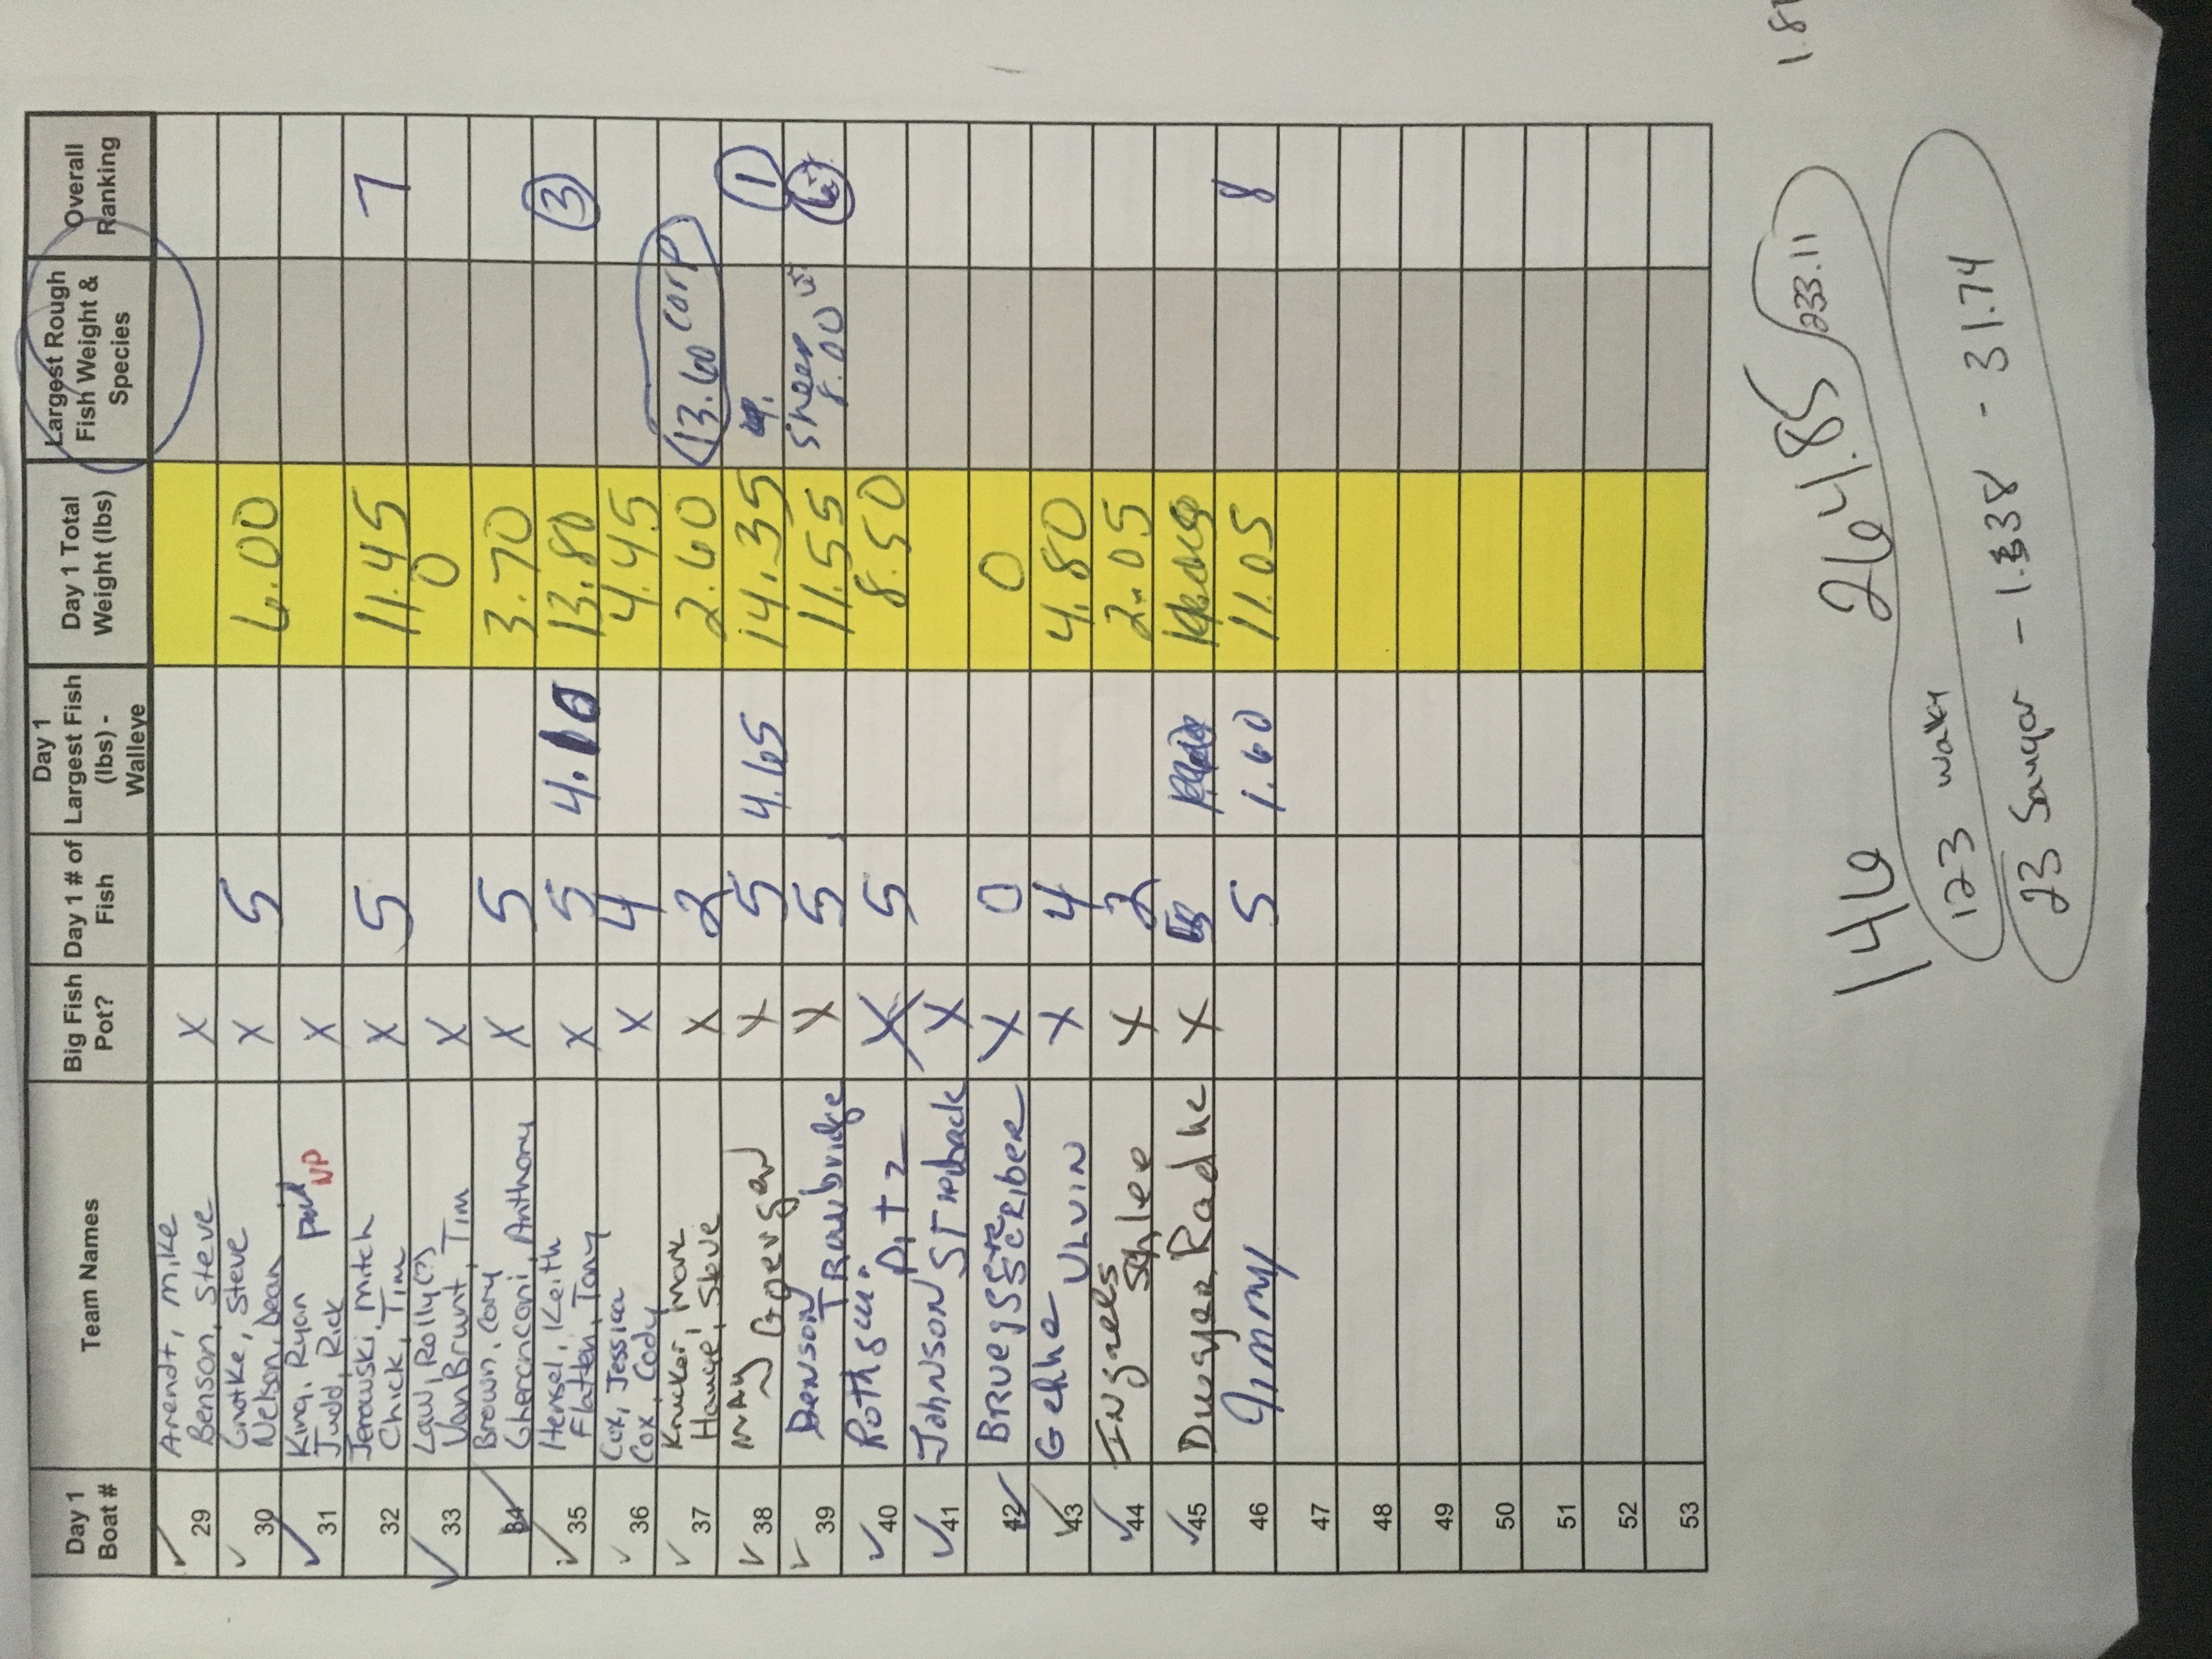 Day 1 Boat # Team Names Big Fish Pot? Day 1 # of Fish Day 1 Largest Fish (lbs) - Walleye Day 1 Total Weight (lbs) Largest Rough Fish Weight & Species Overall Ranking
✓ 29 Arendt, Mike
Benson, Steve X
✓ 30 Gnotke, Steve
Nelson, Dean X 5 6.00
✓ 31 King, Ryan paid NP
Judd, Rick X
32 Jerowski, Mitch
Chick, Tim X 5 11.45 7
✓ 33 Law, Rolly (?)
VanBrunt, Tim X 0
✓ 34 Brown, Cory
Gheranconi, Anthony X 5 3.70
✓ 35 Hensel, Keith
Flatten, Tony X 5 4.10 13.80 3
✓ 36 Cox, Jessica
Cox, Cody X 4 4.45
✓ 37 Knucker, Mark
Hauge, Steve X 2 2.60 13.60 carp
✓ 38 MAY Goergen X 5 4.65 14.35 1
✓ 39 Denson TRowbridge X 5 11.55 sheep 8.00
✓ 40 Ditz X 5 8.50
✓ 41 JohNSON STinback X
✓ 42 X 0 0
✓ 43 Gehke ULVIN X 4 4.80
✓ 44 INgaels Schlee X 2 2.05
✓ 45 Dwyer, Radke X
46 Jimmy 5 1.60 11.05 8
47
48
49
50
51
52
53
1.8
146 264.85 233.11
123 walley
23 Saugar - 1.38 - 31.74